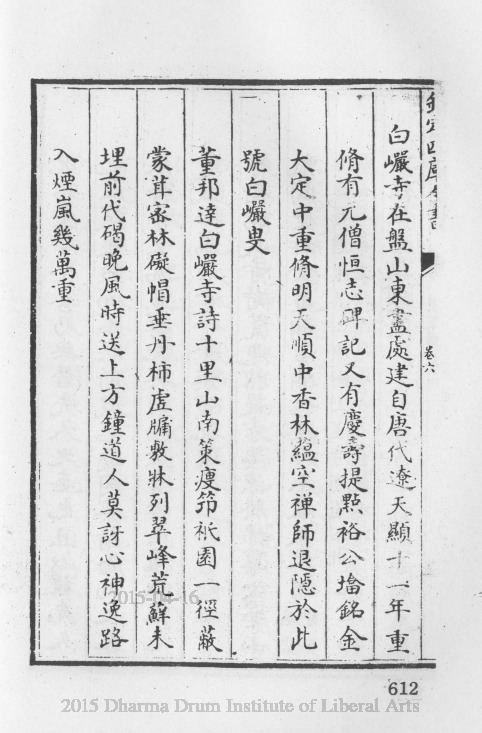 欽定四庫全書
卷六
白巖寺在盤山東盡處建自唐代遼天顯十一年重
脩有元僧恒志碑記又有慶壽提點裕公塔銘金
大定中重脩明天順中香林蘊空禅師退隱於此
號白巖叟
董邦達白巖寺詩十里山南策瘦筇祇園一徑蔽
蒙茸密林礙帽垂丹柿虚牖敷牀列翠峰荒蘚未
埋前代碣晚風時送上方鐘道人莫訝心神逸路
入煙嵐幾萬重
2015-04-16
612
2015 Dharma Drum Institute of Liberal Arts